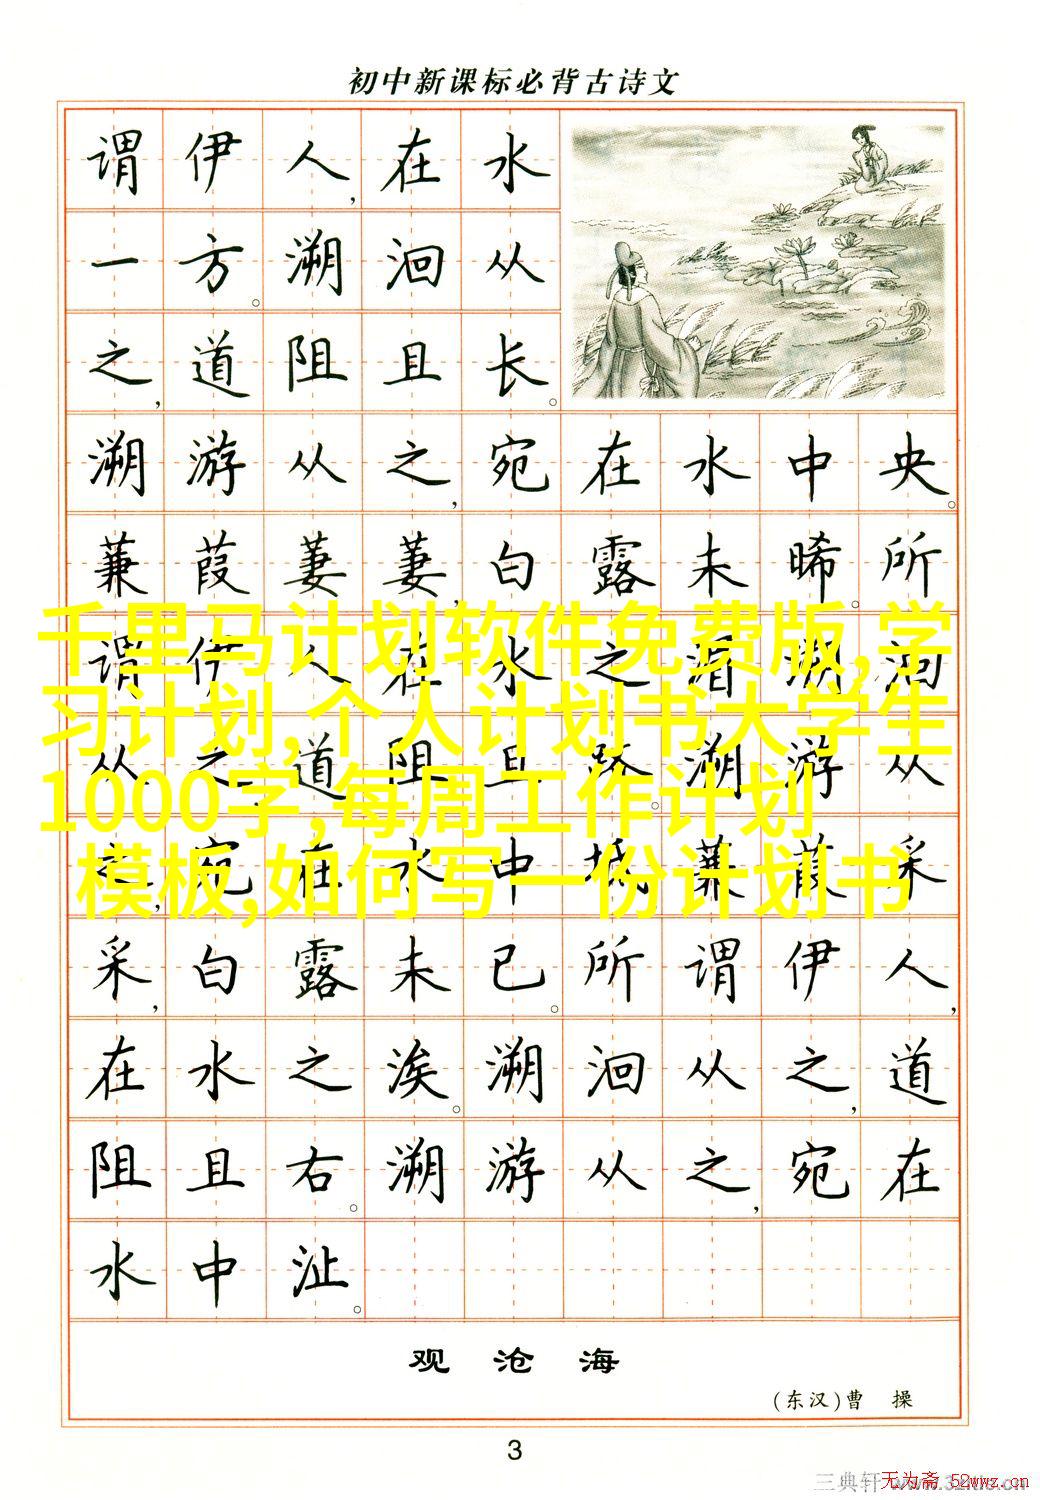 初中新课标必背古诗文
谓伊人,在水
一方。溯洄从
之,道阻且长。
溯游从之,宛在水中央。
蒹葭萋萋,白露未晞。所
谓伊人,在水之湄。溯洄
从之,道阻且跻。溯游从
之,宛在水中坻。蒹葭采
采,白露未已。所谓伊人,
在水之涘。溯洄从之,道
阻且右。溯游从之,宛在
水中沚。
千里马计划软件免费版,学
习计划,个人计划书大学生
1000字,每周工作计划
模板,如何写一份计划书
观沧海
(东汉)曹操
3
三典轩
无为斋 52wwz.cn